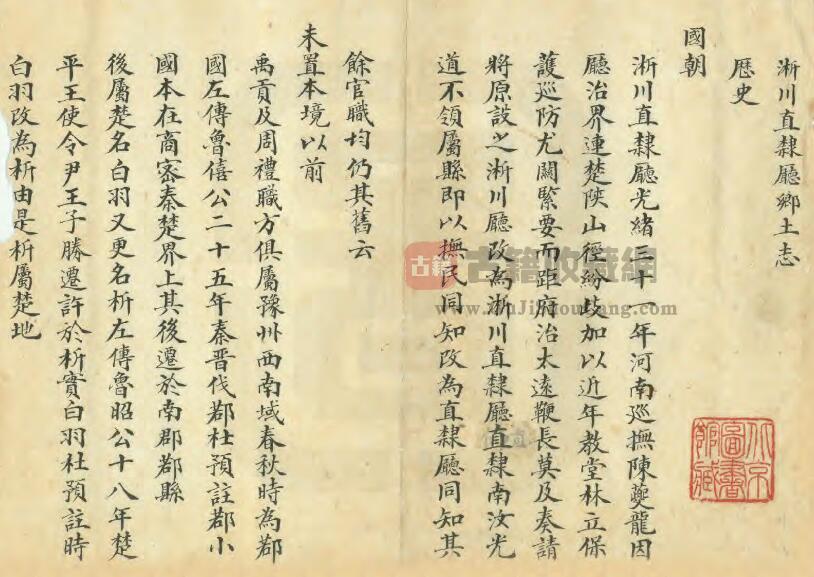 淅川直隸廳鄉土志
歷史
國朝
淅川直隸廳光緒三十一年河南巡撫陳夔龍因
廳治界連楚陝山徑紛歧加以近年教堂林立保
護巡防尤關緊要而距府治太遠鞭長莫及奏請
將原設之淅川廳改為淅川直隸廳直隸南汝光
道不領屬縣即以撫民同知改為直隸廳同知其
餘官職均仍其舊云
未置本境以前
禹貢及周禮職方俱屬豫州西南域春秋時為鄀
國左傳魯僖公二十五年秦晉伐鄀杜預註鄀小
國本在商密秦楚界上其後遷於南郡鄀縣
後屬楚名白羽又更名析左傳魯昭公十八年楚
平王使令尹王子勝遷許於析實白羽杜預註時
白羽改為析由是析屬楚地
古籍
古籍收藏網
北京
圖書
館藏